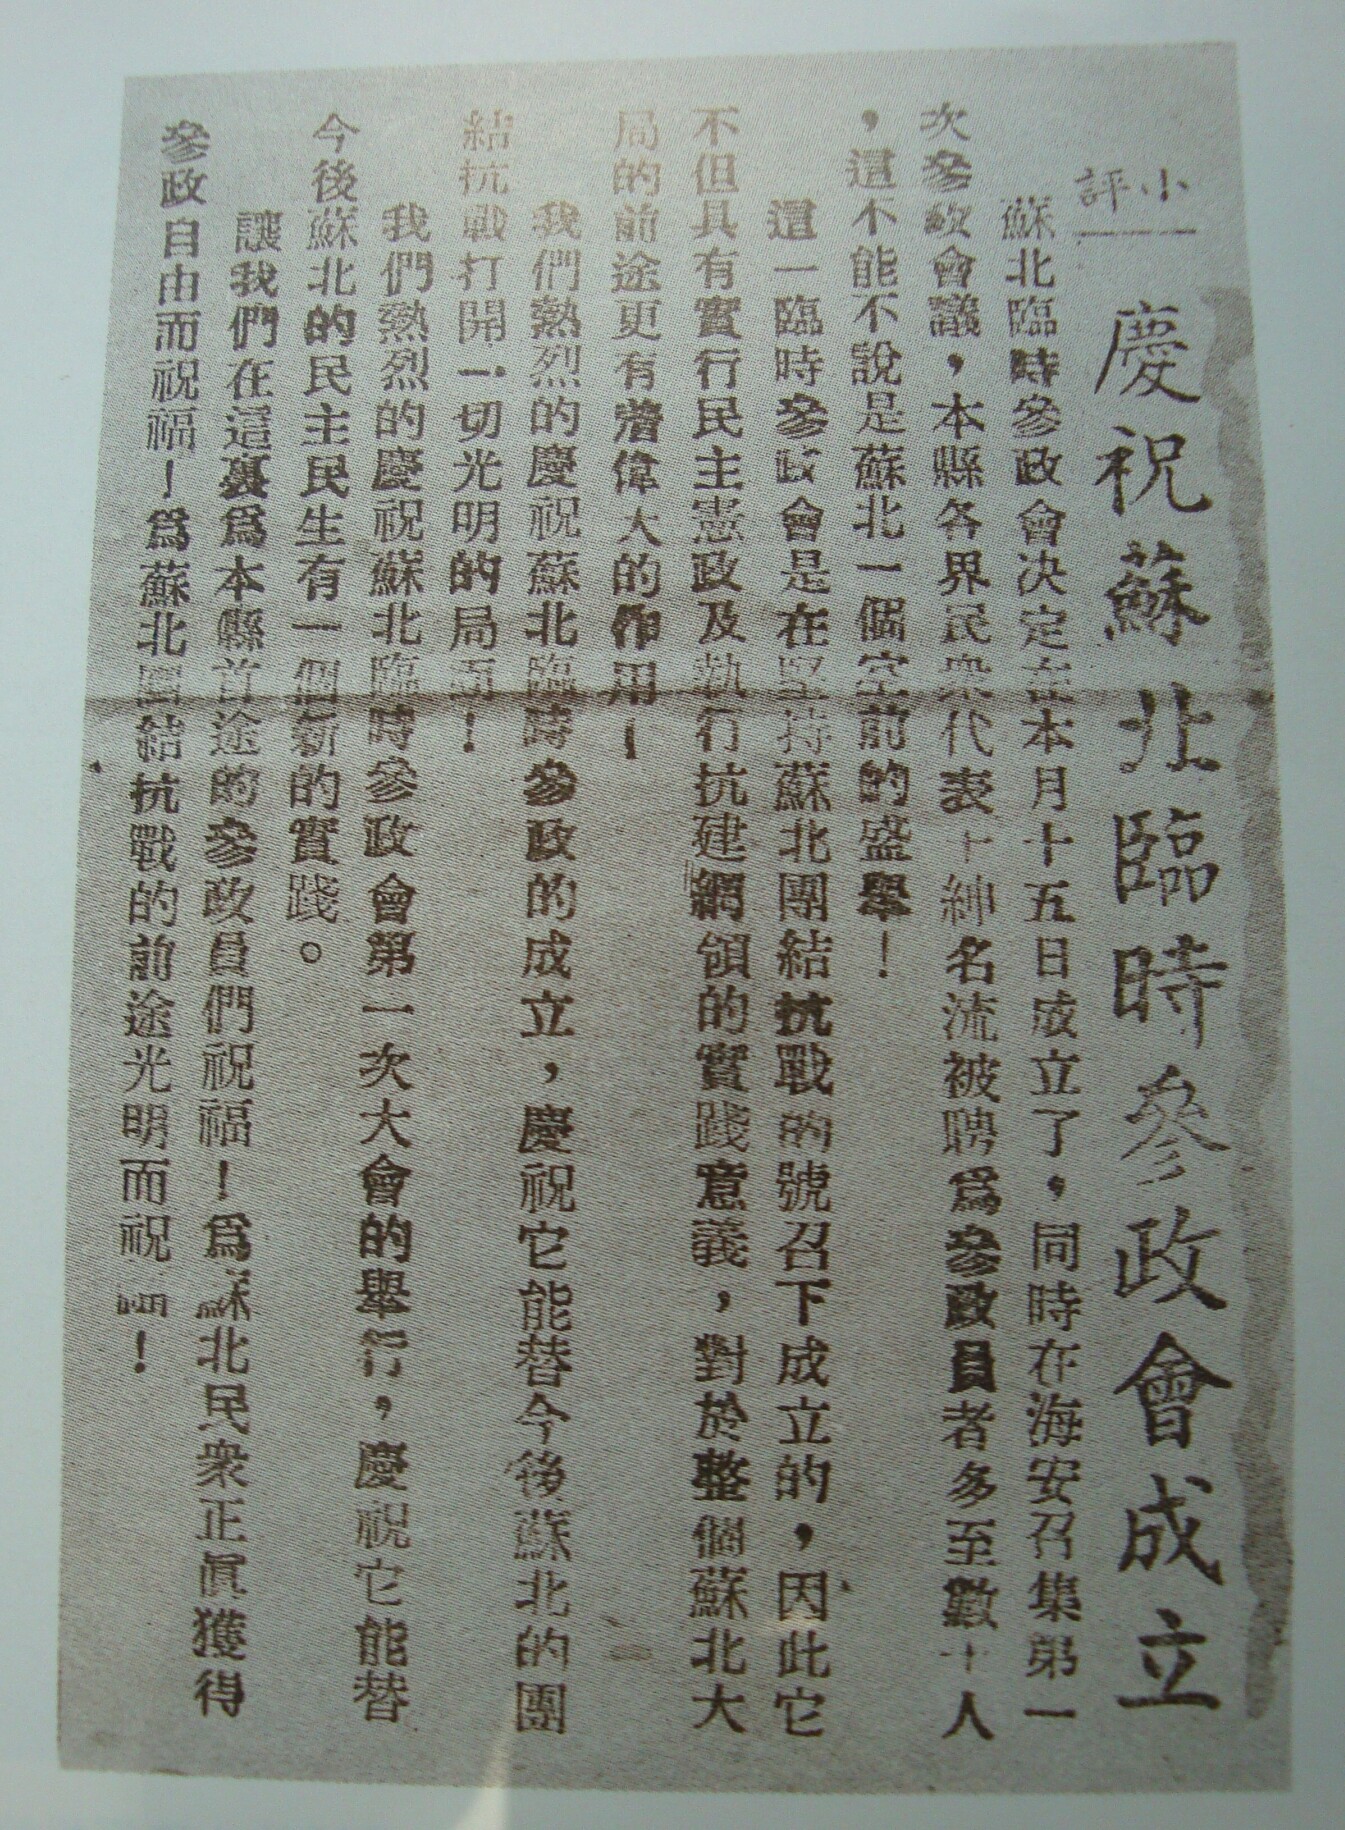 小評
慶祝蘇北臨時參政會成立
蘇北臨時參政會決定在本月十五日成立了，同時在海安召集第一
次參政會議，本縣各界民衆代表十紳名流被聘爲參政員者多至數十人
，這不能不說是蘇北一個空前的盛舉！
這一臨時參政會是在堅持蘇北團結抗戰的號召下成立的，因此它
不但具有實行民主憲政及執行抗建綱領的實踐意義，對於整個蘇北大
局的前途更有着偉大的作用！
我們熱烈的慶祝蘇北臨時參政的成立，慶祝它能替今後蘇北的團
結抗戰打開一切光明的局面！
我們熱烈的慶祝蘇北臨時參政會第一次大會的舉行，慶祝它能替
今後蘇北的民主民生有一個新的實踐。
讓我們在這裏爲本縣首途的參政員們祝福！爲蘇北民衆正眞獲得
參政自由而祝福！爲蘇北團結抗戰的前途光明而祝！